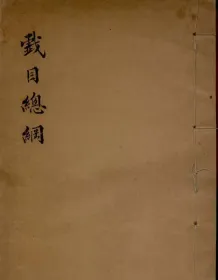 戲目總綱